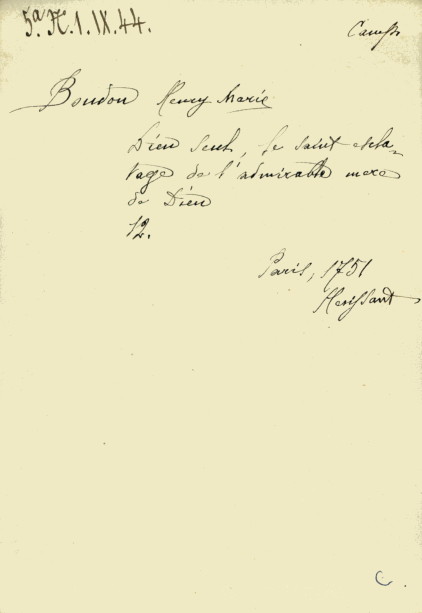 5ª.H.1.IX.44.
Boudon Henry Marie
Dieu seul, le saint escla-
vage de l'admirable mere
de Dieu
12.
Paris, 1751
Herissant
C.